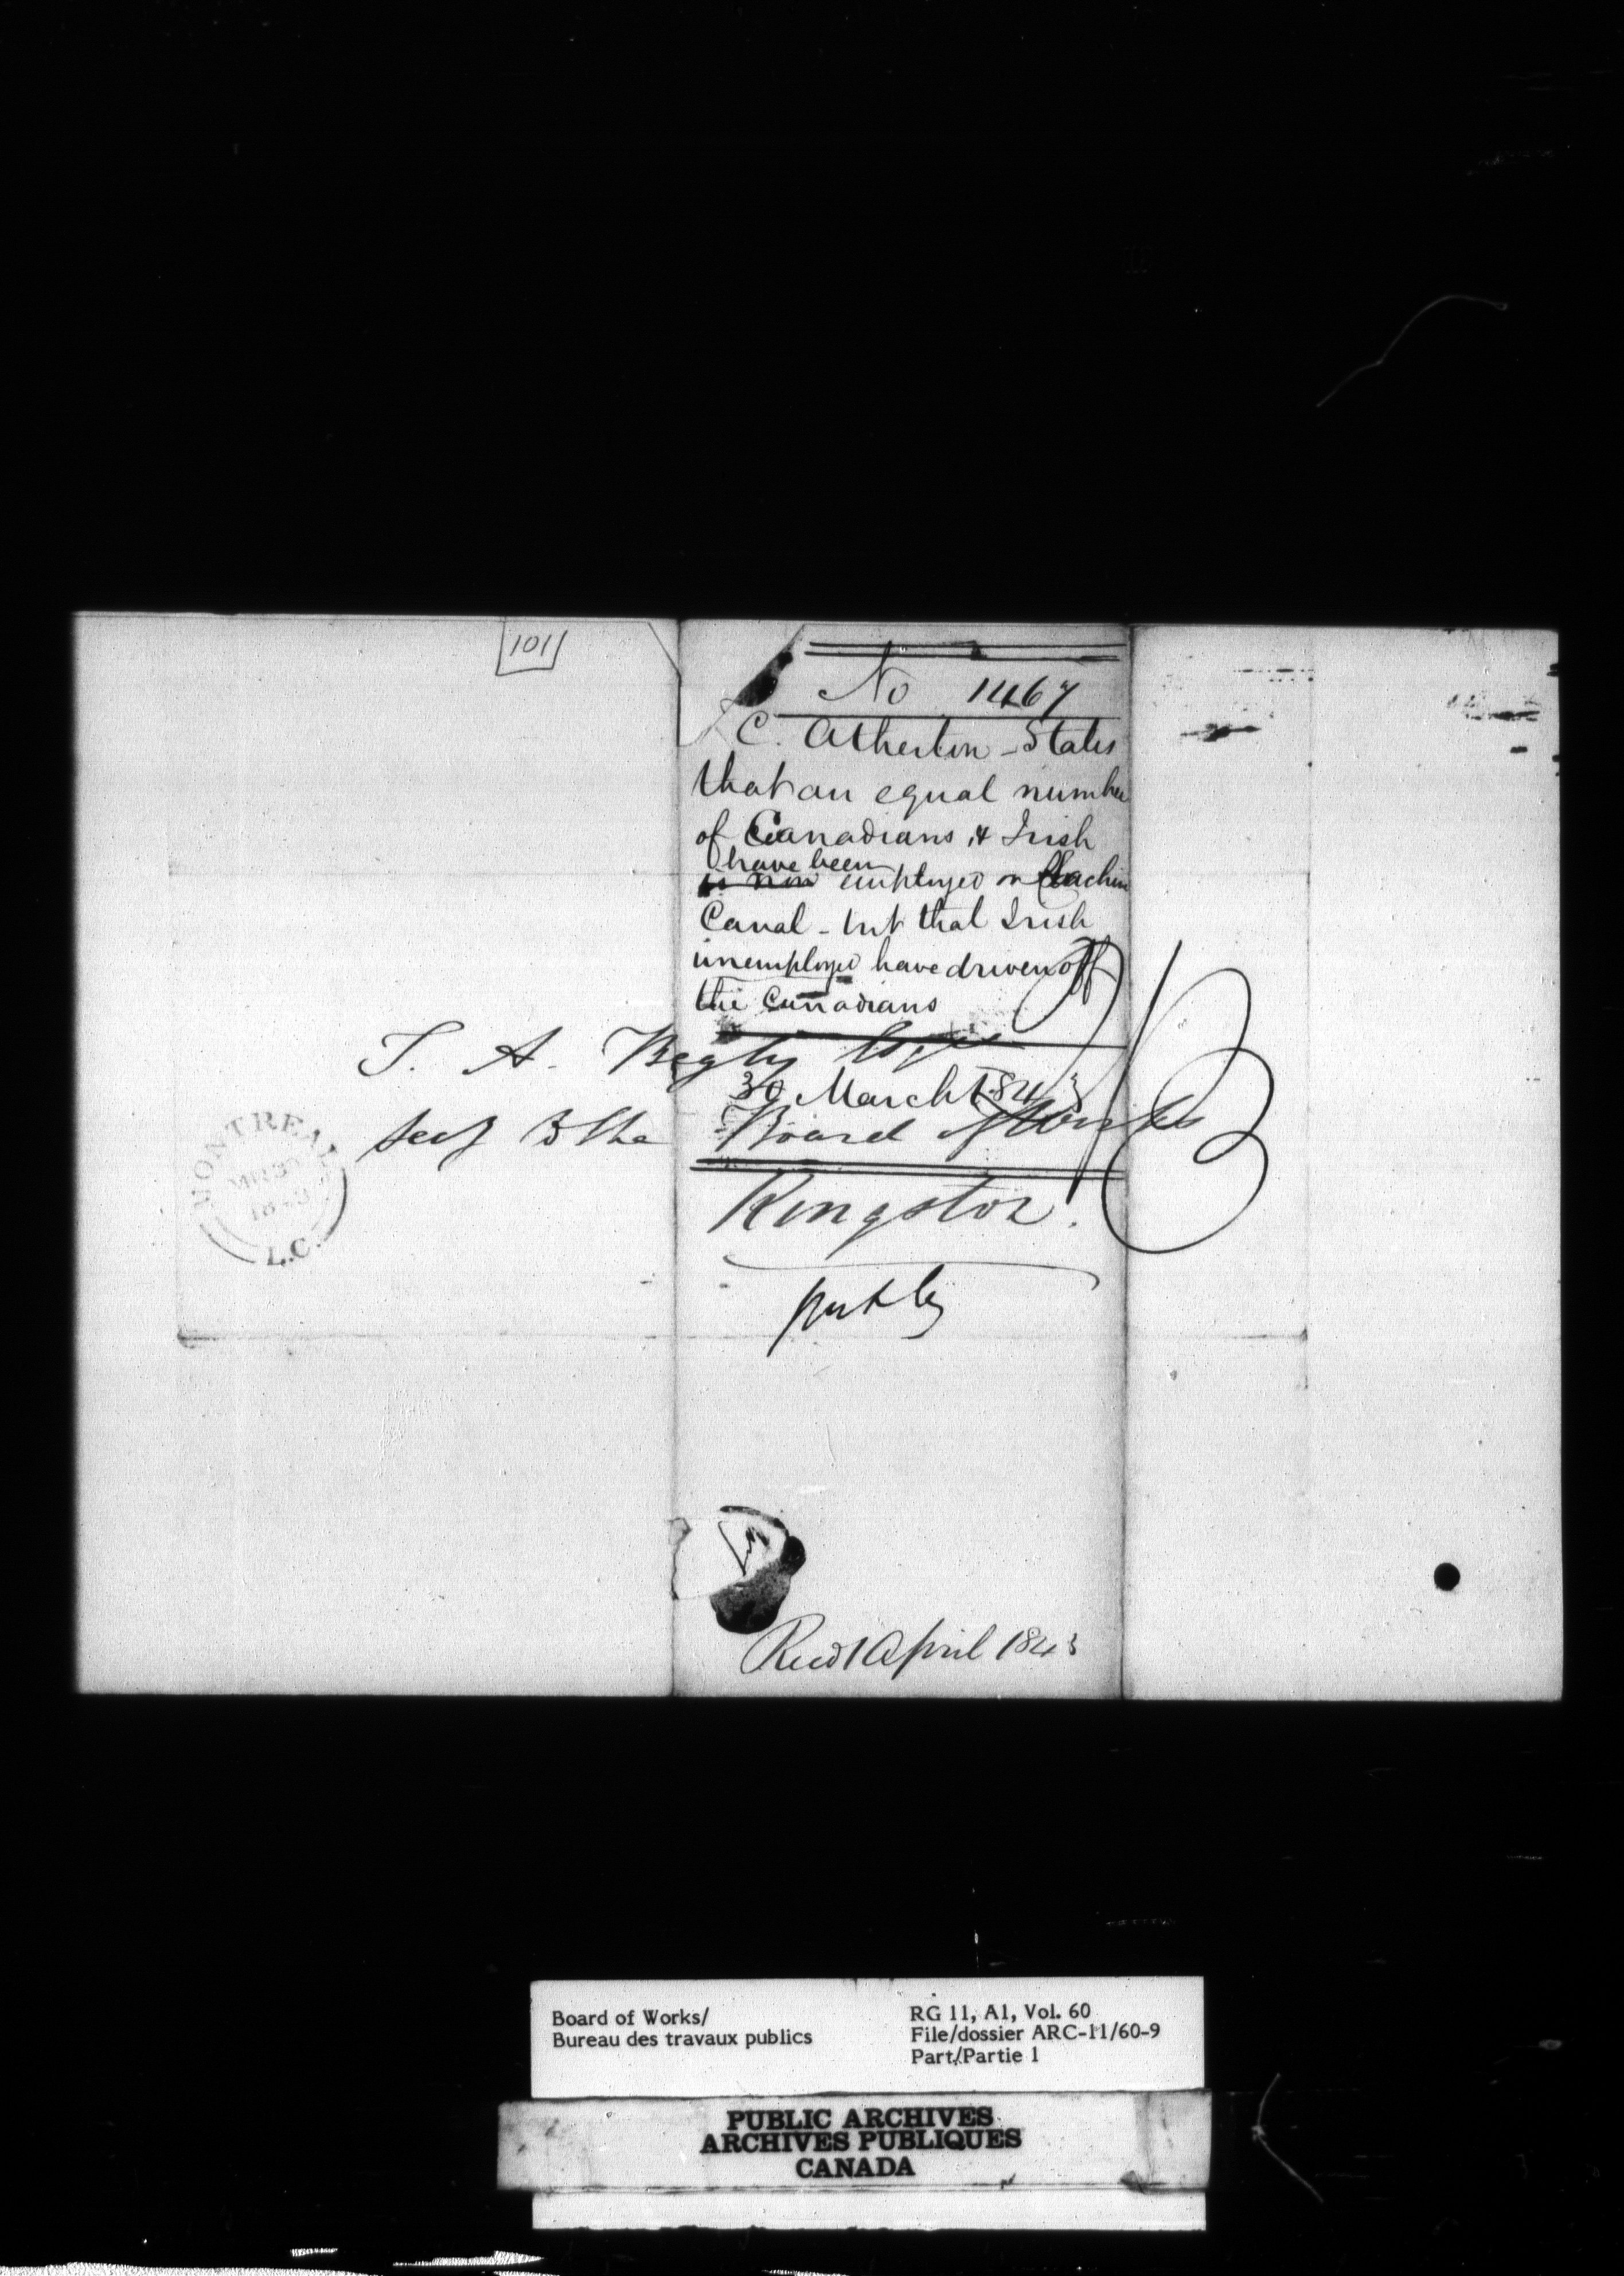 101
No 1467
C. Atherton - States
that an equal number
of Canadians & Irish
have been
is now employed on Lachine
Canal - but that Irish
unemployed have driven off
the Canadians
T. A. Begly Esqr
30 March 1843
Secy to the Board of Works
Kingston.
MONTREAL
L.C.
Recd 1 April 1843
Board of Works/
Bureau des travaux publics
RG 11, A1, Vol. 60
File/dossier ARC-11/60-9
Part/Partie 1
PUBLIC ARCHIVES
ARCHIVES PUBLIQUES
CANADA